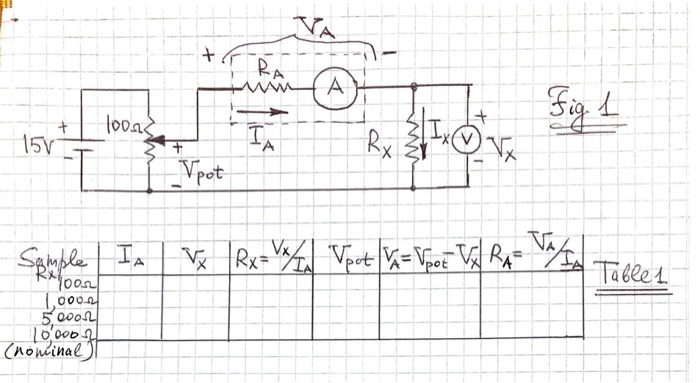 V_A
+ −
R_A
A
Fig. 1
15V + −
100Ω
+
V_pot
−
I_A
R_X
I_X
V
+
V_X
−
Sample R_X | I_A | V_X | R_X = V_X/I_A | V_pot | V_A = V_pot − V_X | R_A = V_A/I_A
100Ω
1,000Ω
5,000Ω
10,000Ω
(nominal)
Table 1